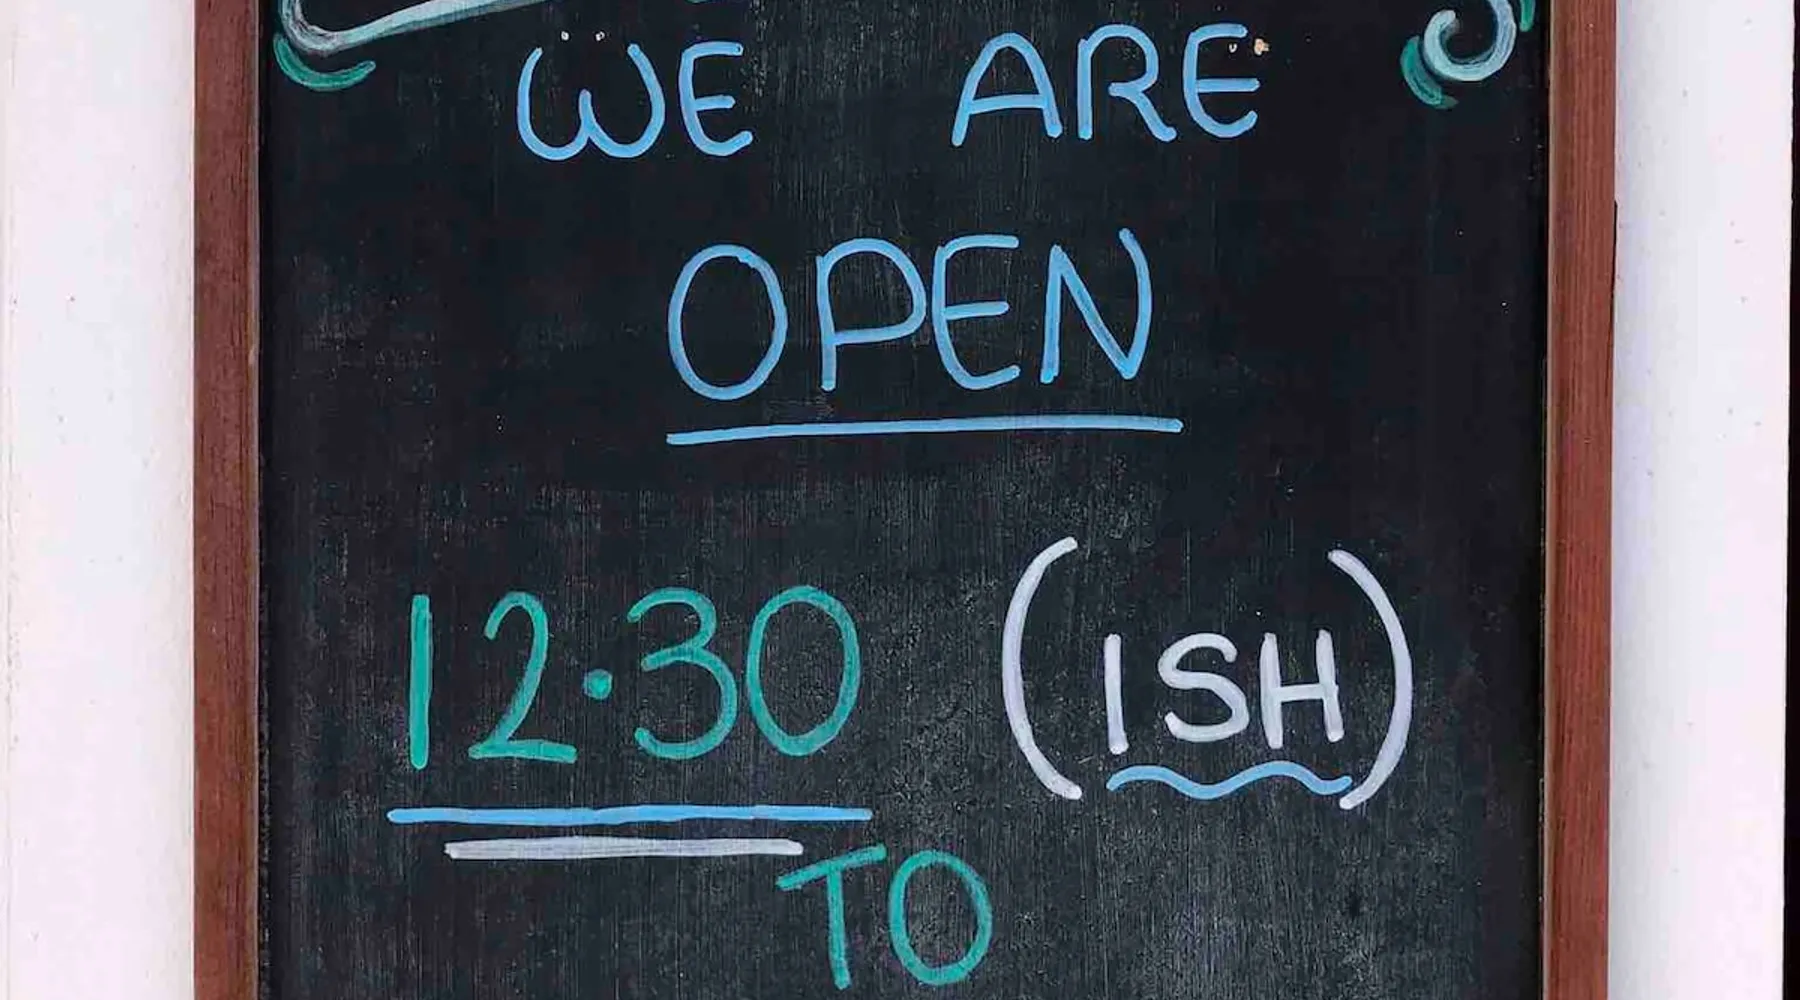 WE ARE
OPEN
12.30 (ISH)
TO